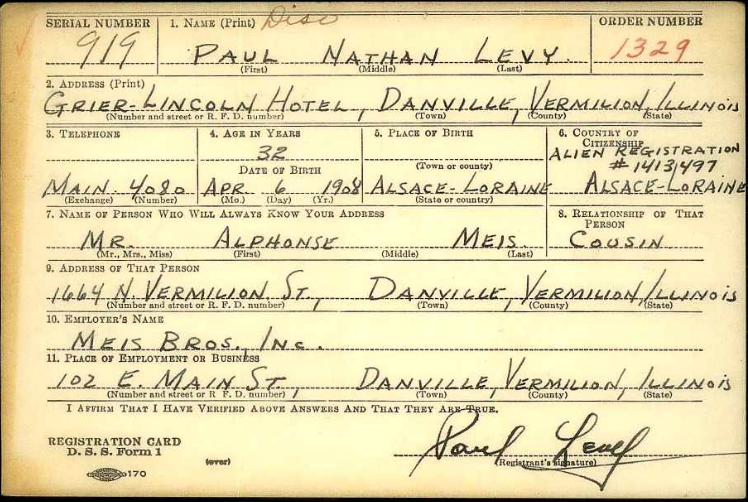 SERIAL NUMBER 1. NAME (Print) Disc ORDER NUMBER
919 PAUL NATHAN LEVY 1329
(First) (Middle) (Last)
2. ADDRESS (Print)
GRIER-LINCOLN HOTEL, DANVILLE, VERMILION, ILLINOIS
(Number and street or R. F. D. number) (Town) (County) (State)
3. TELEPHONE 4. AGE IN YEARS 5. PLACE OF BIRTH 6. COUNTRY OF CITIZENSHIP
32 ALIEN REGISTRATION
DATE OF BIRTH (Town or county) # 1413497
MAIN 4080 APR 6 1908 ALSACE-LORAINE ALSACE-LORAINE
(Exchange) (Number) (Mo.) (Day) (Yr.) (State or country)
7. NAME OF PERSON WHO WILL ALWAYS KNOW YOUR ADDRESS 8. RELATIONSHIP OF THAT PERSON
MR. ALPHONSE MEIS COUSIN
(Mr., Mrs., Miss) (First) (Middle) (Last)
9. ADDRESS OF THAT PERSON
1664 N. VERMILION ST, DANVILLE, VERMILION, ILLINOIS
(Number and street or R. F. D. number) (Town) (County) (State)
10. EMPLOYER'S NAME
MEIS BROS., INC.
11. PLACE OF EMPLOYMENT OR BUSINESS
102 E. MAIN ST, DANVILLE, VERMILION, ILLINOIS
(Number and street or R. F. D. number) (Town) (County) (State)
I AFFIRM THAT I HAVE VERIFIED ABOVE ANSWERS AND THAT THEY ARE TRUE.
REGISTRATION CARD
D. S. S. Form 1 (over) Paul Levy
(Registrant's signature)
170